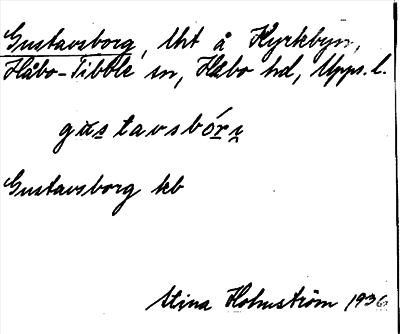 Gustavsborg, lht å Kyrkbyn,
Håbo-Tibble sn, Håbo hd, Upps. l.
gustavsbórj
Gustavsborg kb
Stina Holmström 1936